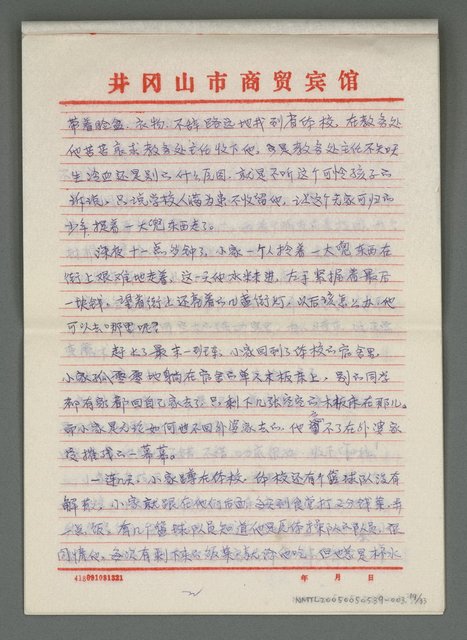 井冈山市商贸宾馆
带着脸盆、衣物,不辞路远地找到省体校,在教务处
他苦苦哀求教务处主任收下他,可是教务处主任不知天
生冷血还是别的什么原因,就是不听这个可怜孩子的
诉说,只说学校人满为患不收留他,让这个无家可归的
少年提着一大兜东西走了。
深夜十一点多钟了,小家一个人拎着一大兜东西在
街上艰难地走着,这一天他水米未进,左手紧握着最后
一块钱,望着街上还亮着的几盏街灯,以后该怎么办?他
可以去哪里呢?
赶上了最末一班车,小家回到了体校的宿舍里,
小家孤零零地躺在宿舍的单人木板床上,别的同学
都有家都回自己家去了,只剩下几张空空的木板床在那儿。
而小家是无论如何也不回外婆家去的,他忘不了在外婆家
受摧残的一幕幕。
一连几天,小家蹲在体校,体校还有个篮球队没有
解散,小家就跟在他们后面,每次到食堂打2分钱菜,弄
一点饭,有几个篮球队员知道他是原体操队的队员,很
同情他,每次有剩下来的饭菜就给他吃,但也总是杯水
418091031321
年 月 日
NMTL20050050539-003